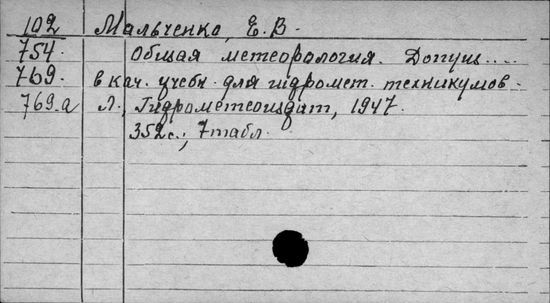 102 Мальченко, Е. В.
754. Общая метеорология. Допущ....
769. в кач. учебн. для гидромет. техникумов.
769.а Л., Гидрометеоиздат, 1947.
352 с., 7 табл.